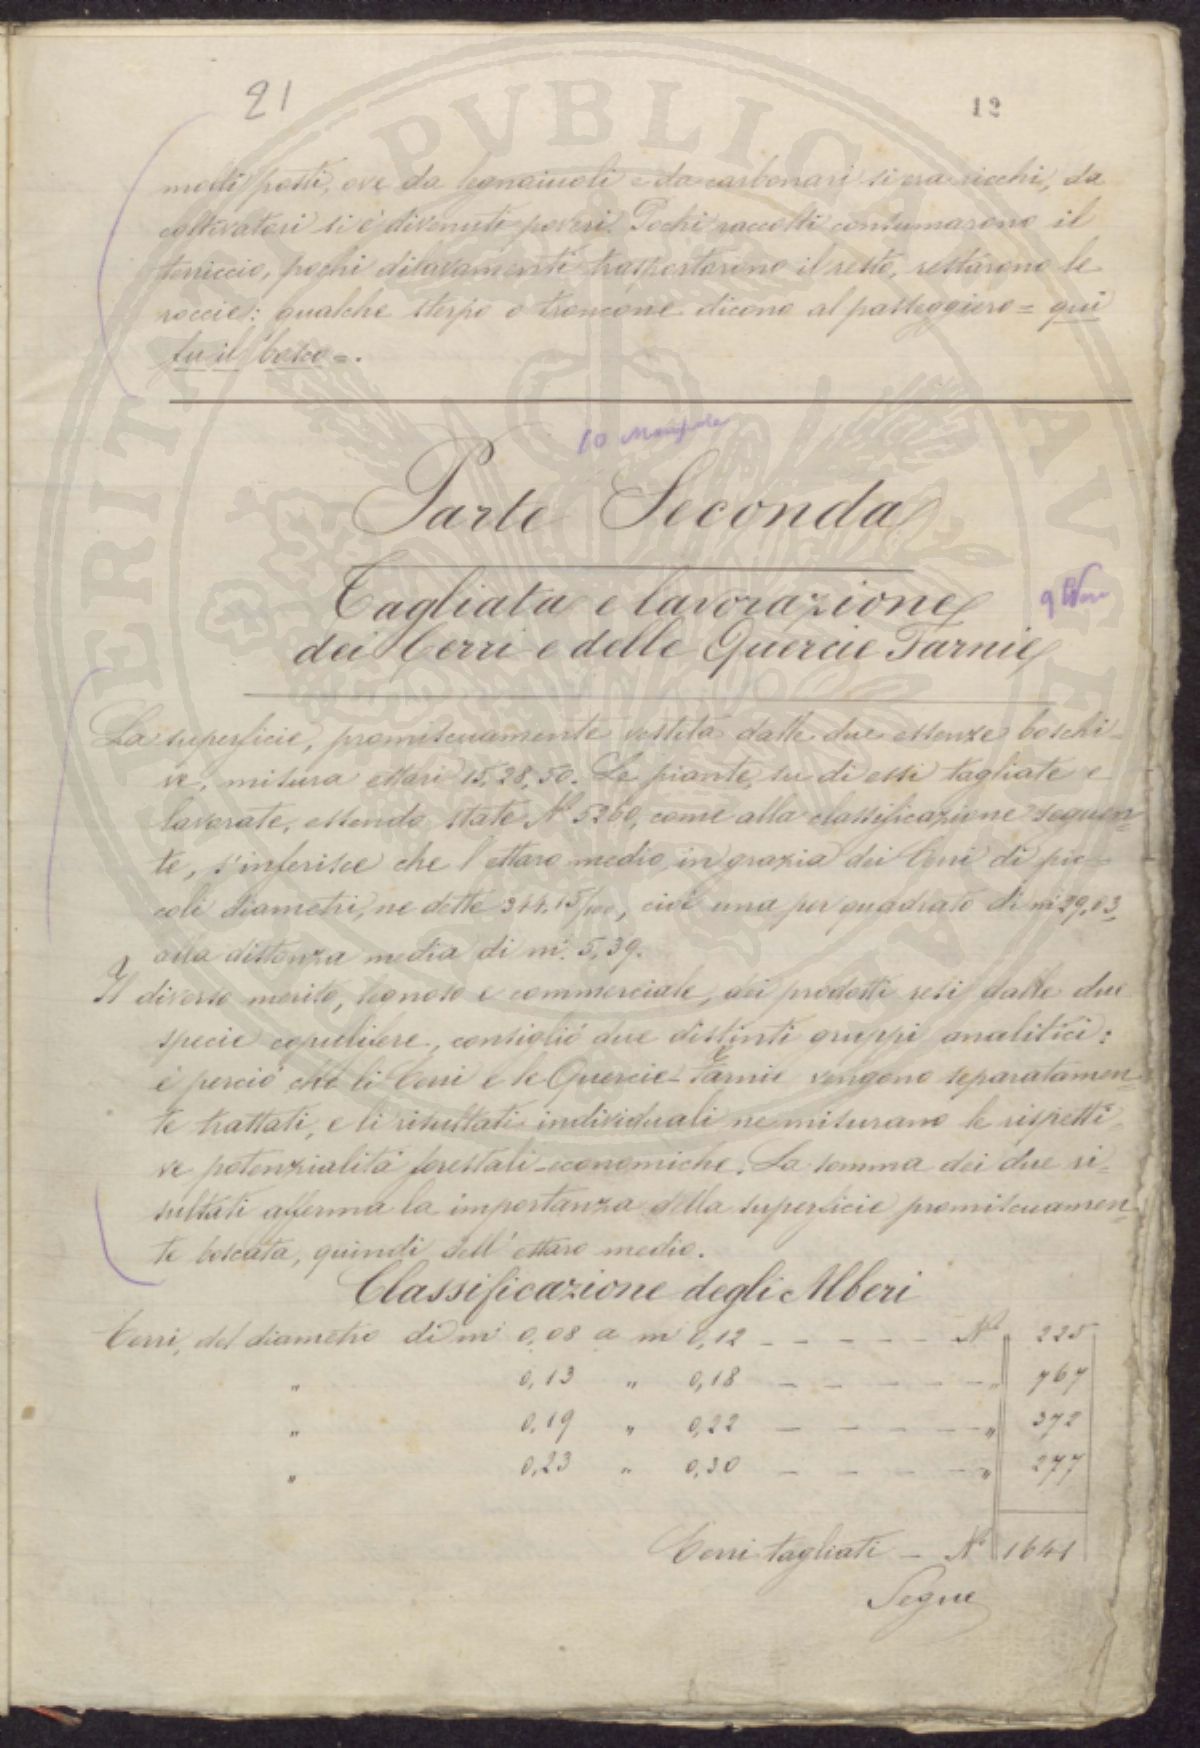 21
12
molti posti, ove da legnaiuoli e da carbonari si era ricchi, da
coltivatori si è divenuti poveri. Pochi raccolti consumarono il
terriccio, pochi dilavamenti trasportarono il resto, restarono le
roccie: qualche sterpo o troncone dicono al passeggiero = qui
fu il bosco =.
10
Parte Seconda
Tagliata e lavorazione
dei Cerri e delle Quercie Farnie
La superficie, promiscuamente vestita dalle due essenze boschi-
ve, misura ettari 15,28,50. Le piante, su di essi tagliate e
lavorate, essendo state N° 5260, come alla classificazione seguen-
te, s'inferisce che l'ettaro medio, in grazia dei Cerri di pic-
coli diametri, ne dette 344,15/100, cioè una per quadrato di m² 29,03
alla distanza media di m. 5,39.
Il diverso merito, legnoso e commerciale, dei prodotti resi dalle due
specie cupulifere, consigliò due distinti gruppi analitici:
è perciò che li Cerri e le Quercie-Farnie vengono separatamen-
te trattati, e li risultati individuali ne misurano le rispetti-
ve potenzialità forestali-economiche. La somma dei due ri-
sultati afferma la importanza della superficie promiscuamen-
te boscata, quindi dell'ettaro medio.
Classificazione degli Alberi
Cerri, del diametro di m 0,08 a m 0,12 - - - - - N° 225
" 0,13 " 0,18 - - - - - " 767
" 0,19 " 0,22 - - - - - " 372
" 0,23 " 0,30 - - - - " 277
Cerri tagliati - N° 1641
Segue